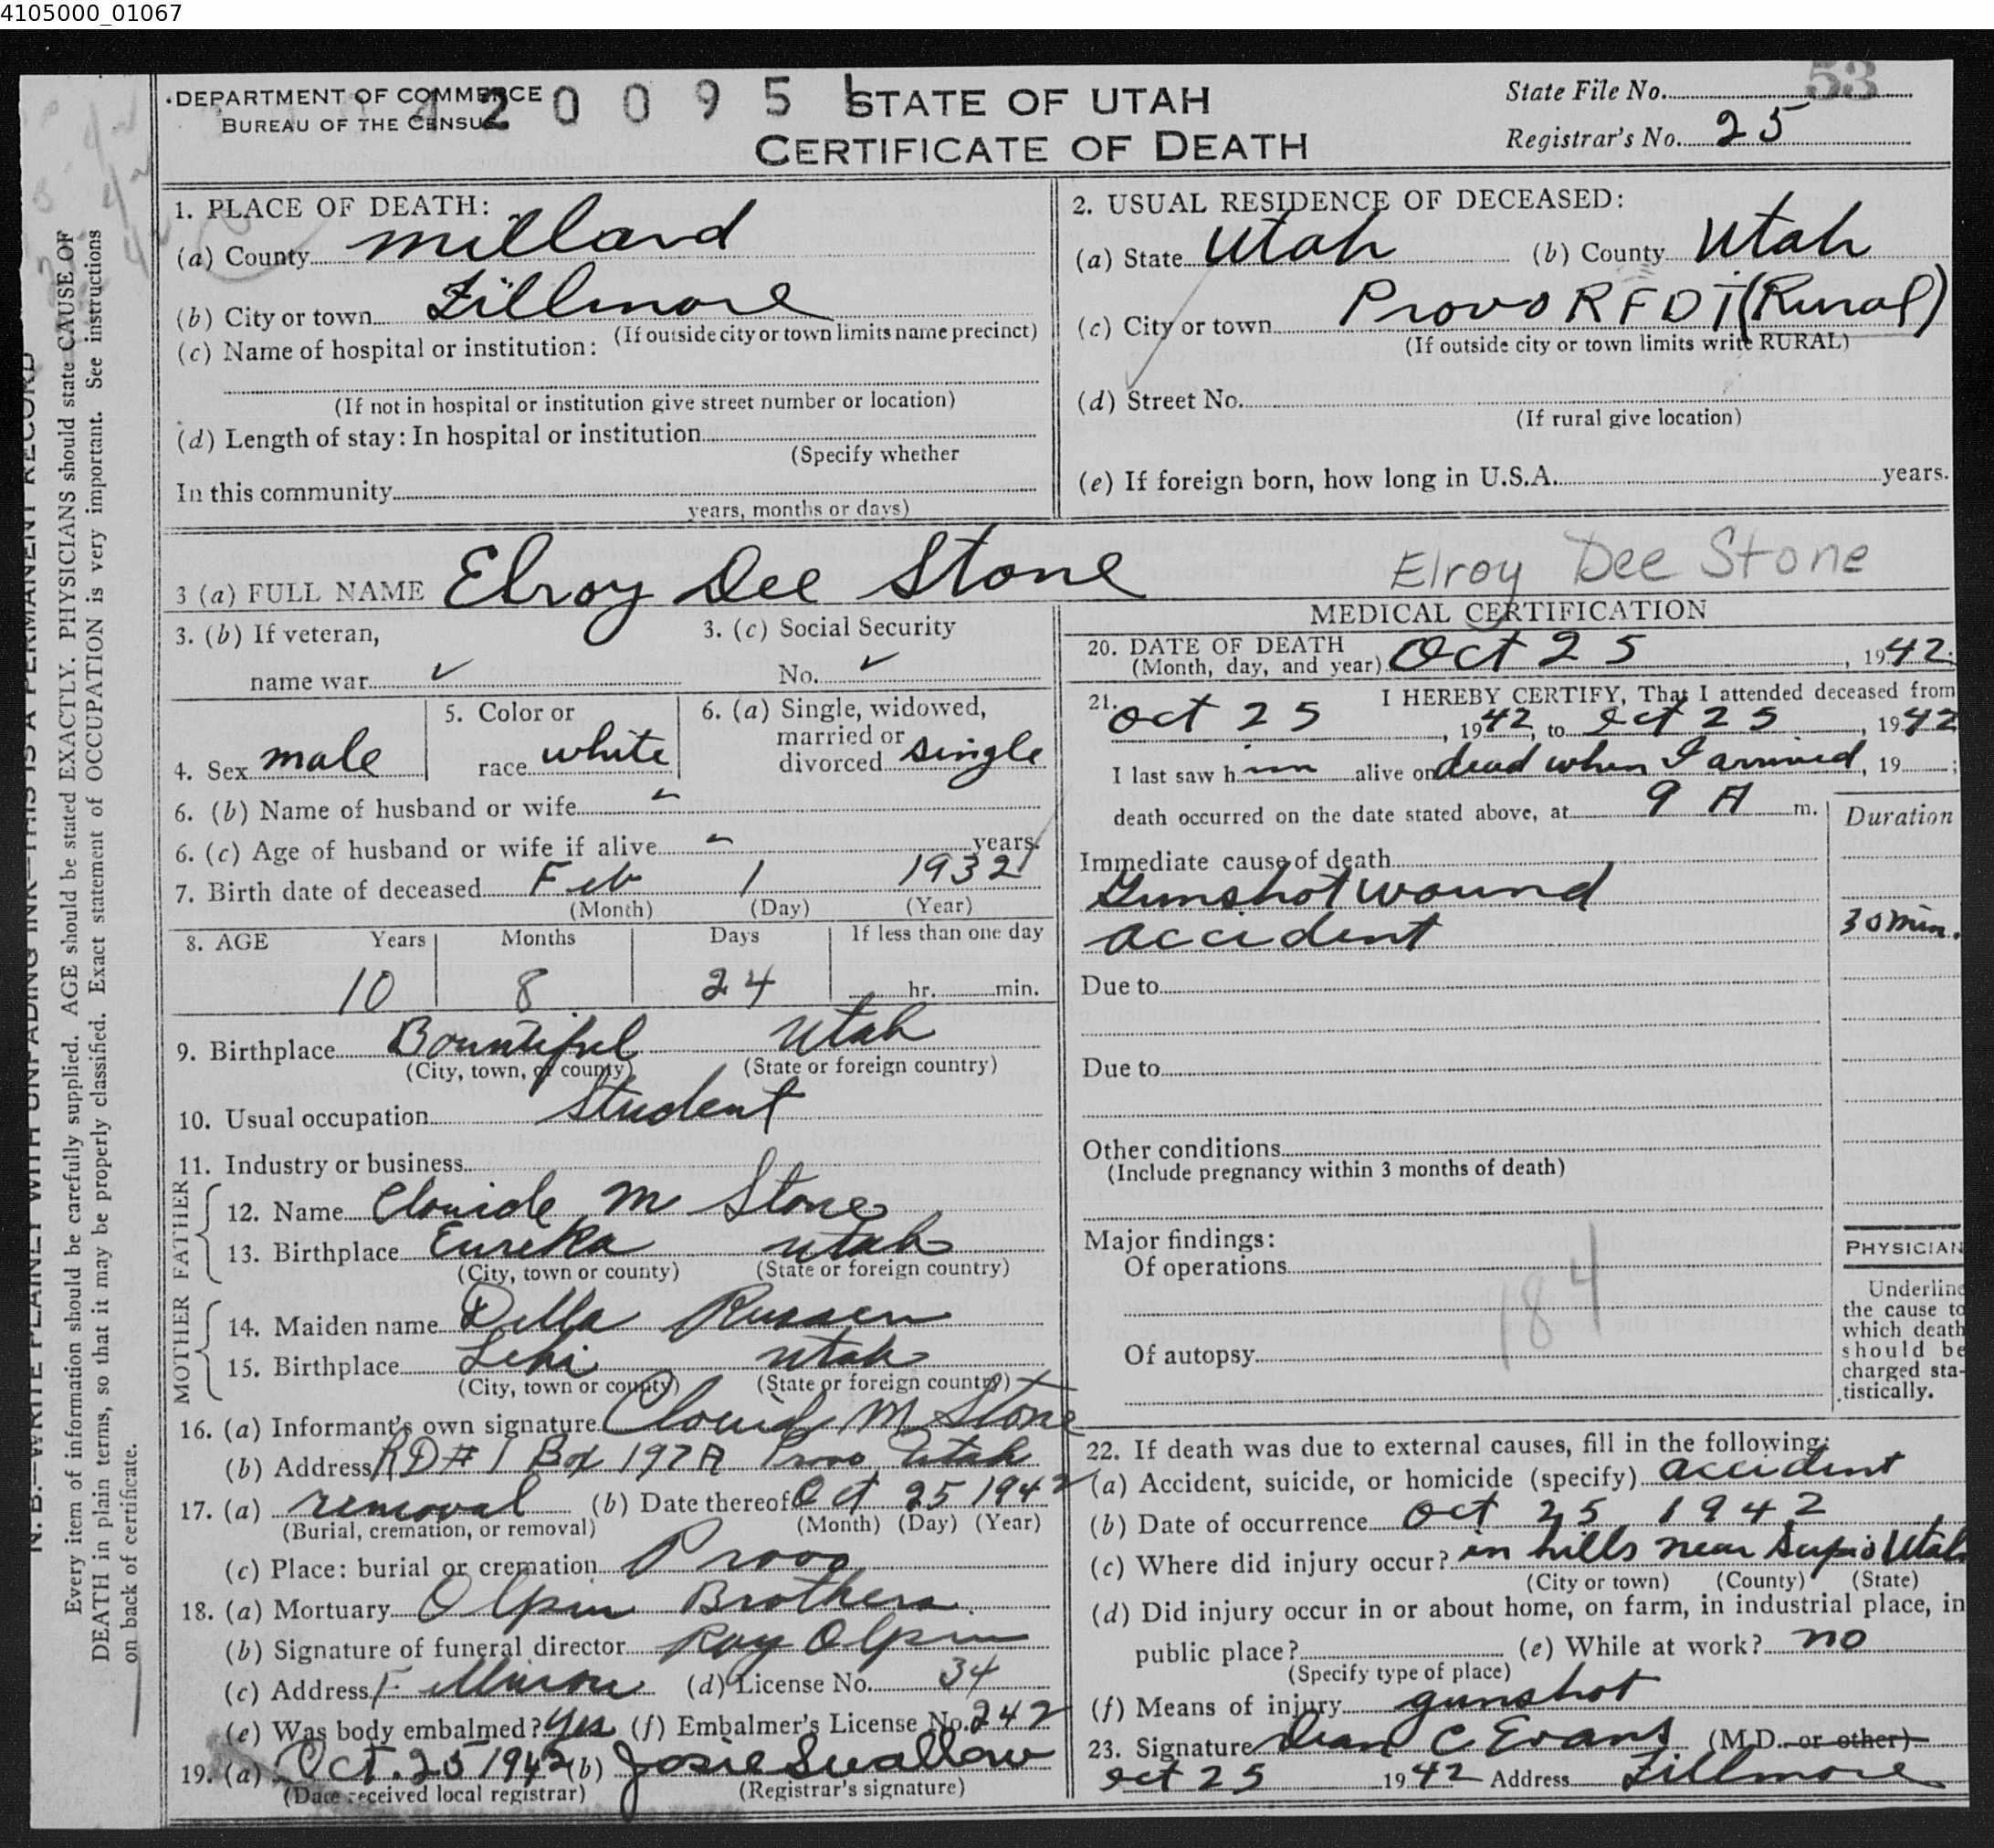 4105000_01067
DEPARTMENT OF COMMERCE
BUREAU OF THE CENSUS
420095
STATE OF UTAH
CERTIFICATE OF DEATH
State File No. 53
Registrar's No. 25
1. PLACE OF DEATH:
(a) County Millard
(b) City or town Fillmore
(If outside city or town limits name precinct)
(c) Name of hospital or institution:
(If not in hospital or institution give street number or location)
(d) Length of stay: In hospital or institution
(Specify whether
In this community
years, months or days)
2. USUAL RESIDENCE OF DECEASED:
(a) State Utah (b) County Utah
(c) City or town Provo RFD 1 (Rural)
(If outside city or town limits write RURAL)
(d) Street No.
(If rural give location)
(e) If foreign born, how long in U.S.A. years.
3 (a) FULL NAME Elroy Dee Stone Elroy Dee Stone
3. (b) If veteran,
name war ✓
3. (c) Social Security
No. ✓
4. Sex male
5. Color or
race white
6. (a) Single, widowed,
married or
divorced single
6. (b) Name of husband or wife
6. (c) Age of husband or wife if alive years.
7. Birth date of deceased Feb 1 1932
(Month) (Day) (Year)
8. AGE Years Months Days If less than one day
10 8 24 hr. min.
9. Birthplace Bountiful Utah
(City, town, or county) (State or foreign country)
10. Usual occupation Student
11. Industry or business
FATHER
12. Name Clouide M Stone
13. Birthplace Eureka Utah
(City, town or county) (State or foreign country)
MOTHER
14. Maiden name Della
15. Birthplace Lehi Utah
(City, town or county) (State or foreign country)
16. (a) Informant's own signature M Stone
(b) Address RD # 1 Box 197A Provo Utah
17. (a) removal (b) Date thereof Oct 25 1942
(Burial, cremation, or removal) (Month) (Day) (Year)
(c) Place: burial or cremation Provo
18. (a) Mortuary Olpin Brothers.
(b) Signature of funeral director Roy Olpin
(c) Address (d) License No. 34
(e) Was body embalmed? Yes (f) Embalmer's License No. 242
19. (a) Oct. 25 1942 (b) Josie Swallow
(Date received local registrar) (Registrar's signature)
MEDICAL CERTIFICATION
20. DATE OF DEATH
(Month, day, and year) Oct 25, 1942
21. I HEREBY CERTIFY, That I attended deceased from
Oct 25, 1942, to Oct 25, 1942
I last saw him alive on dead when I arrived, 19 ;
death occurred on the date stated above, at 9 A m.
Duration
Immediate cause of death
Gunshot wound
accident 30 min.
Due to
Due to
Other conditions
(Include pregnancy within 3 months of death)
Major findings:
Of operations
184
Of autopsy
PHYSICIAN
Underline
the cause to
which death
should be
charged sta-
tistically.
22. If death was due to external causes, fill in the following:
(a) Accident, suicide, or homicide (specify) accident
(b) Date of occurrence Oct 25 1942
(c) Where did injury occur? in hills near Scipio Utah
(City or town) (County) (State)
(d) Did injury occur in or about home, on farm, in industrial place, in
public place? (e) While at work? no
(Specify type of place)
(f) Means of injury gunshot
23. Signature Dean C Evans (M.D. or other)
Oct 25 1942 Address Fillmore
N. B.—WRITE PLAINLY WITH UNFADING INK—THIS IS A PERMANENT RECORD
Every item of information should be carefully supplied. AGE should be stated EXACTLY. PHYSICIANS should state CAUSE OF
DEATH in plain terms, so that it may be properly classified. Exact statement of OCCUPATION is very important. See instructions
on back of certificate.